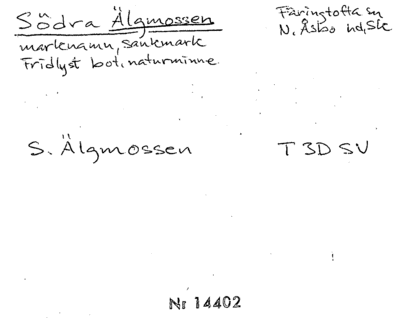 Södra Älgmossen
Färingtofta sn
marknamn, sankmark
N. Åsbo hd, Sk
Fridlyst bot. naturminne
S. Älgmossen
T 3D SV
Nr 14402